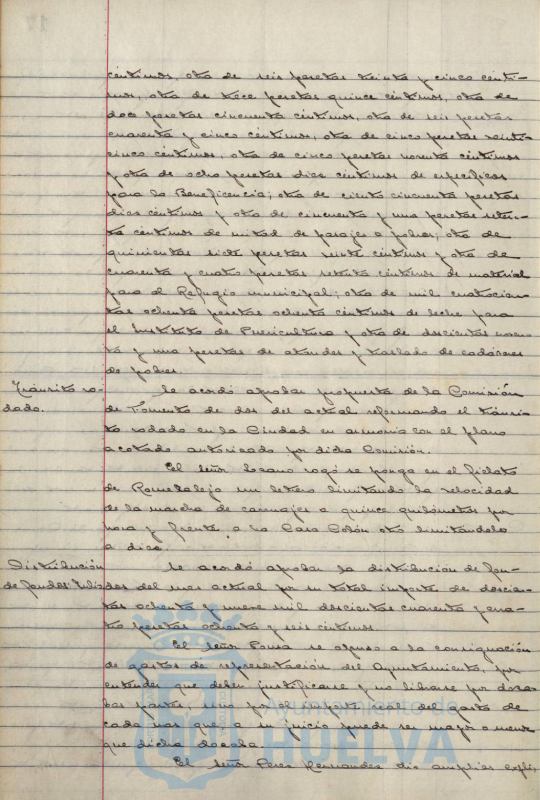 céntimos, otra de seis pesetas treinta y cinco cénti-
mos, otra de trece pesetas quince céntimos, otra de
doce pesetas cincuenta céntimos, otra de seis pesetas
cuarenta y cinco céntimos, otra de cinco pesetas veinti-
cinco céntimos, otra de cinco pesetas noventa céntimos
y otra de ocho pesetas diez céntimos de específicos
para la Beneficencia; otra de ciento cincuenta pesetas
diez céntimos y otra de cincuenta y una pesetas seten-
ta céntimos de mitad de pasajes a pobres; otra de
quinientas siete pesetas veinte céntimos y otra de
cuarenta y cuatro pesetas setenta céntimos de material
para el Refugio municipal; otra de mil cuatrocien-
tas ochenta pesetas ochenta céntimos de leche para
el Instituto de Puericultura y otra de doscientas noven-
ta y una pesetas de ataudes y traslado de cadáveres
de pobres.
Tránsito ro-
dado.
Se acordó aprobar propuesta de la Comisión
de Fomento de dos del actual reformando el tránsi-
to rodado en la Ciudad en armonía con el plano
acotado autorizado por dicha Comisión.
El señor Lozano rogó se ponga en el fielato
de Romeralejo un letrero limitando la velocidad
de la marcha de carruajes a quince quilómetros por
hora y frente a la Casa Colón otro limitándola
a diez.
Distribución
de fondos.
Se acordó aprobar la distribución de fon-
dos del mes actual por su total importe de doscien-
tas ochenta y nueve mil doscientas cuarenta y cua-
tro pesetas ochenta y seis céntimos.
El señor Ponsa se opuso a la consignación
de gastos de representación del Ayuntamiento, por
entender que deben justificarse y no librarse por doza-
bas partes, sino por el importe real del gasto de
cada mes que a su juicio puede ser mayor o menor
que dicha dozaba.
El señor Perez Hernandez dio amplias expli-
Ayuntamiento de
HUELVA